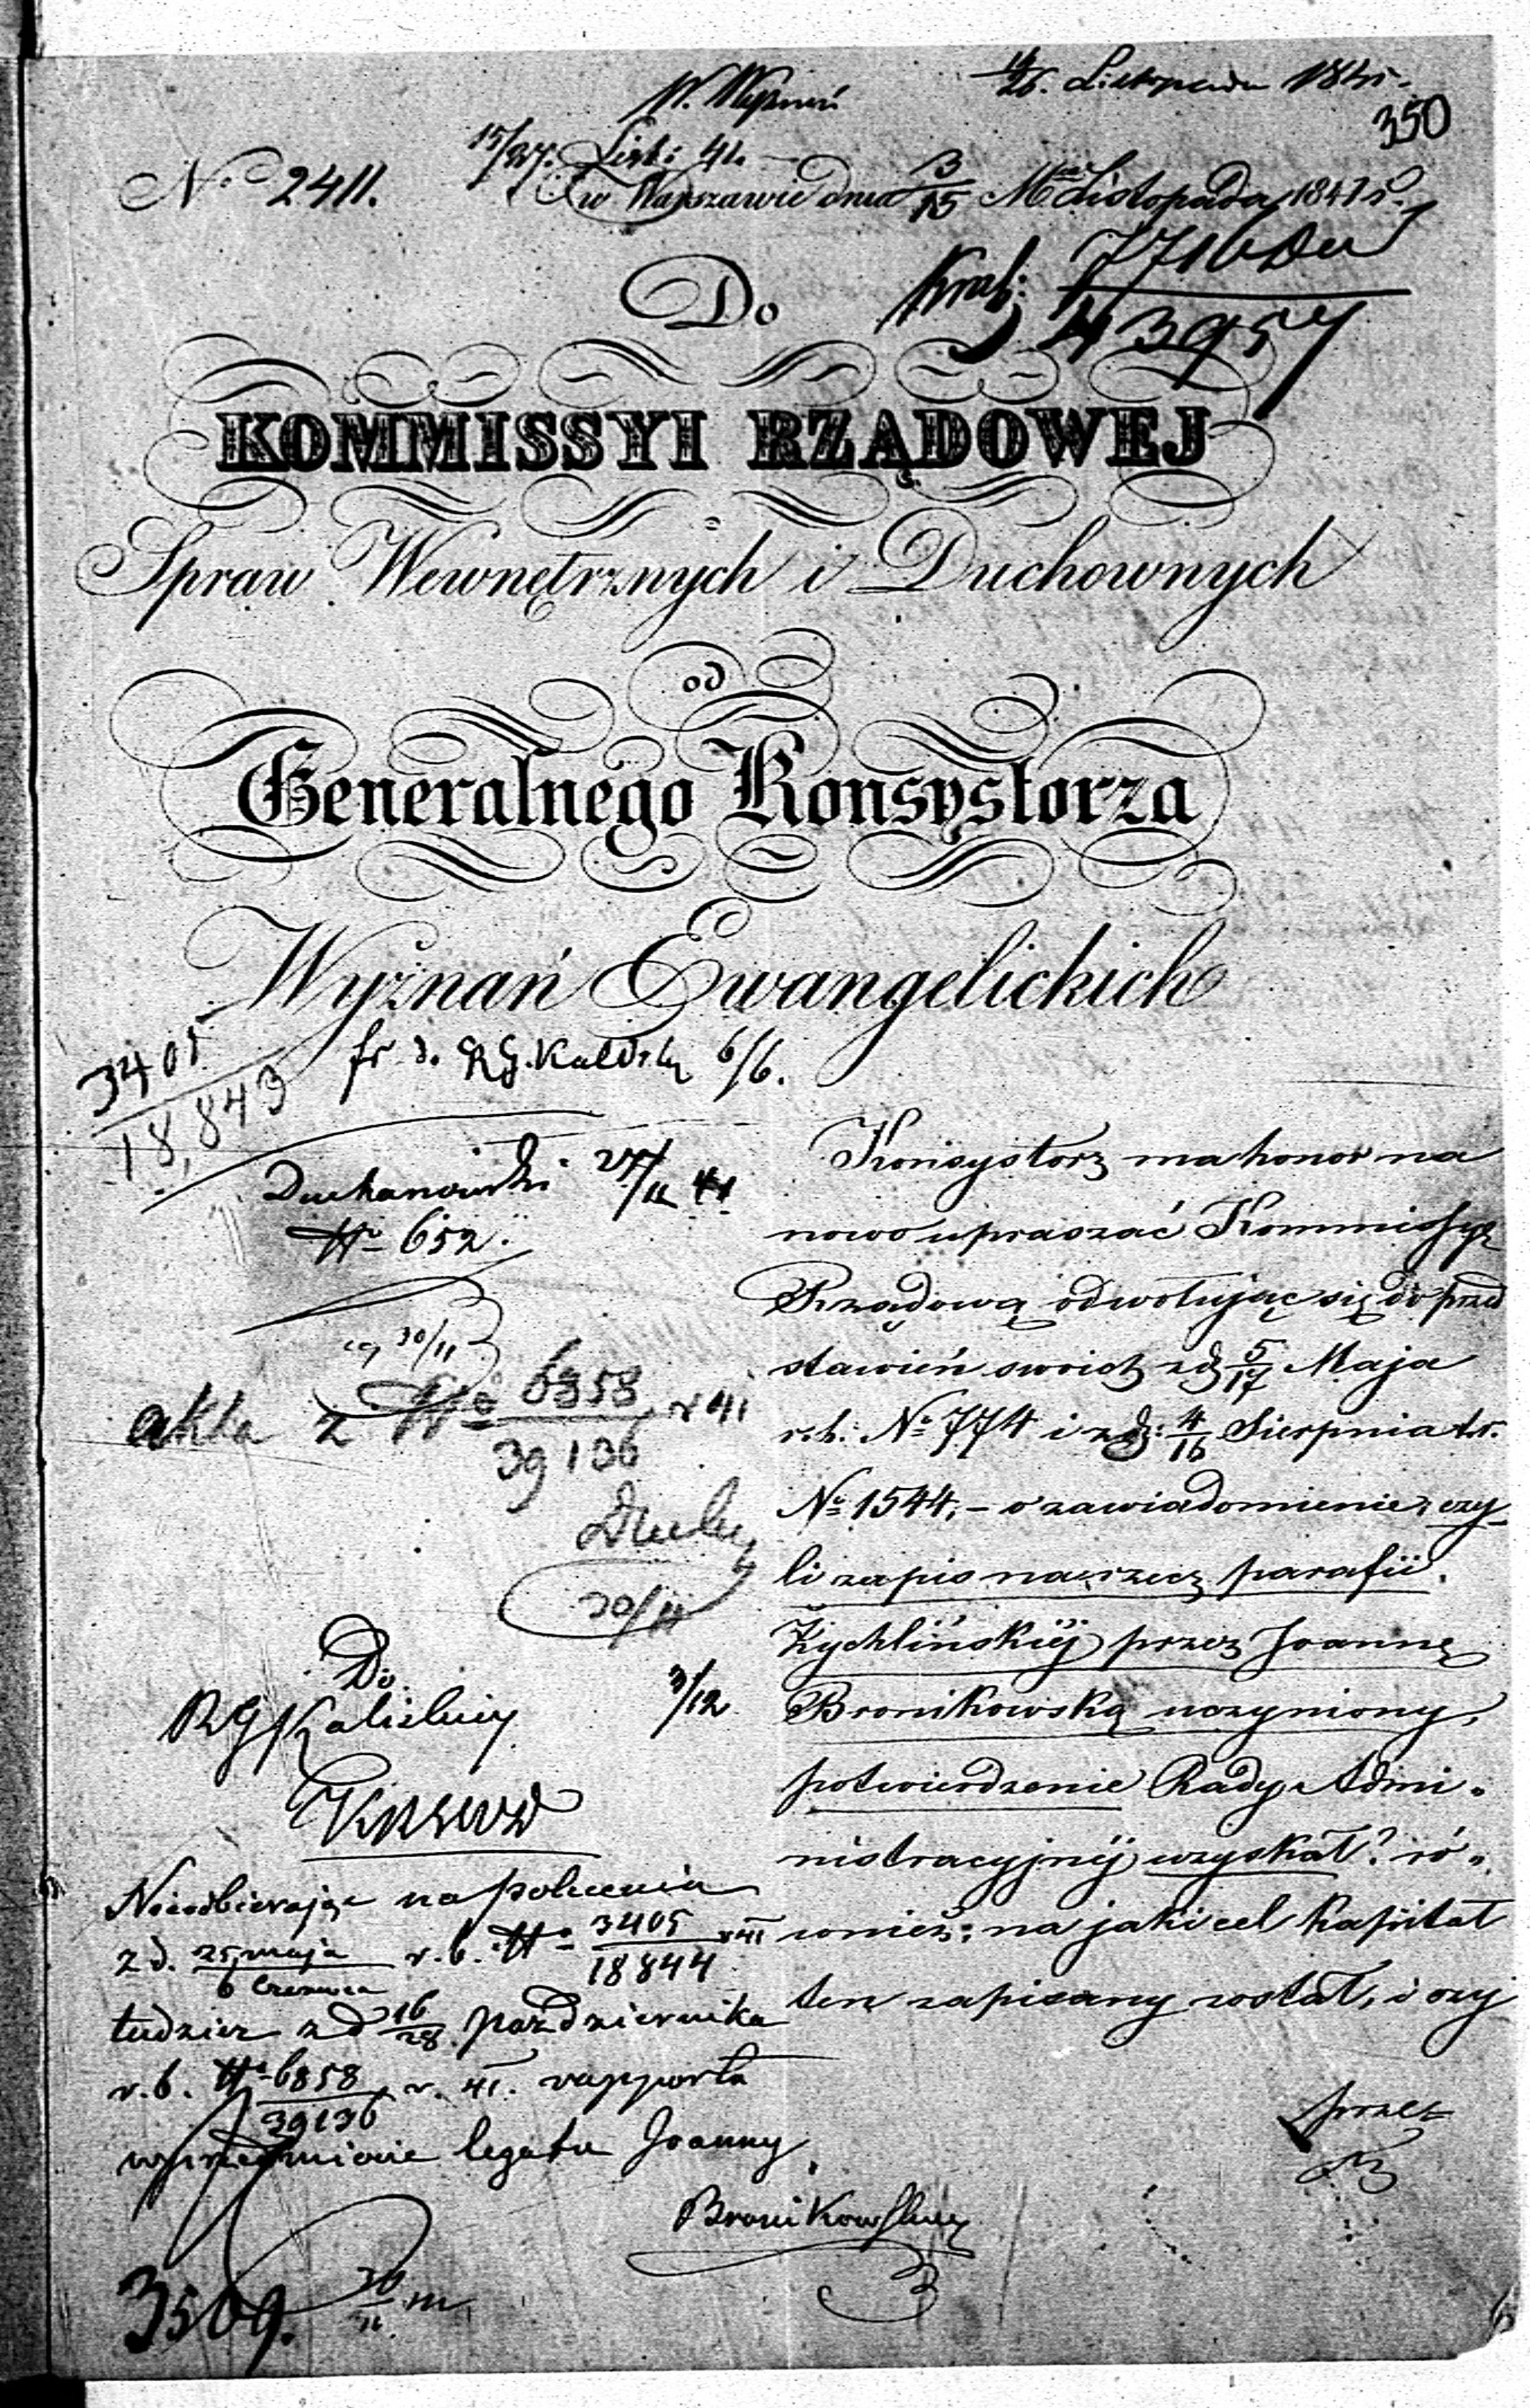 14/26. Listopada 1841 r.
350
15/27.
No 2411.
w Warszawie dnia 3/15 Mca Listopada 1841 r.
7716
43957
Do
KOMMISSYI RZĄDOWEJ
Spraw Wewnętrznych i Duchownych
od
Generalnego Konsystorza
Wyznań Ewangelickich
3405
18,843
6/6.
Duchanowski 27/11 41
No 652.
30/11
akta z No 6858/39136 r 41
30/11
Do
RG Kaliskiey
3/12
Nieodbierając na polecenia
z d. 25 maja/6 Czerwca r. b. No 3405/18844 r 41
tudzież z d 16/28 października
r. b. No 6858/39136 r. 41. rapportu
w przedmiocie legatu Joanny
Bronikowskiey
3509.
30/11
Konsystorz ma honor na
nowo upraszać Kommissyę
Rządową odwołując się do przed
stawień swoich z d. 5/17 Maja
r. b. No 774 i z d: 4/16 Sierpnia t. r.
No 1544, – o zawiadomienie, czy-
li zapis na rzecz parafii
Żychlińskiéj przez Joannę
Bronikowską uczyniony,
potwierdzenie Rady Admi-
nistracyjnéj uzyskał? ró-
wnież: na jaki cel kapitał
ten zapisany został, i czy
przez